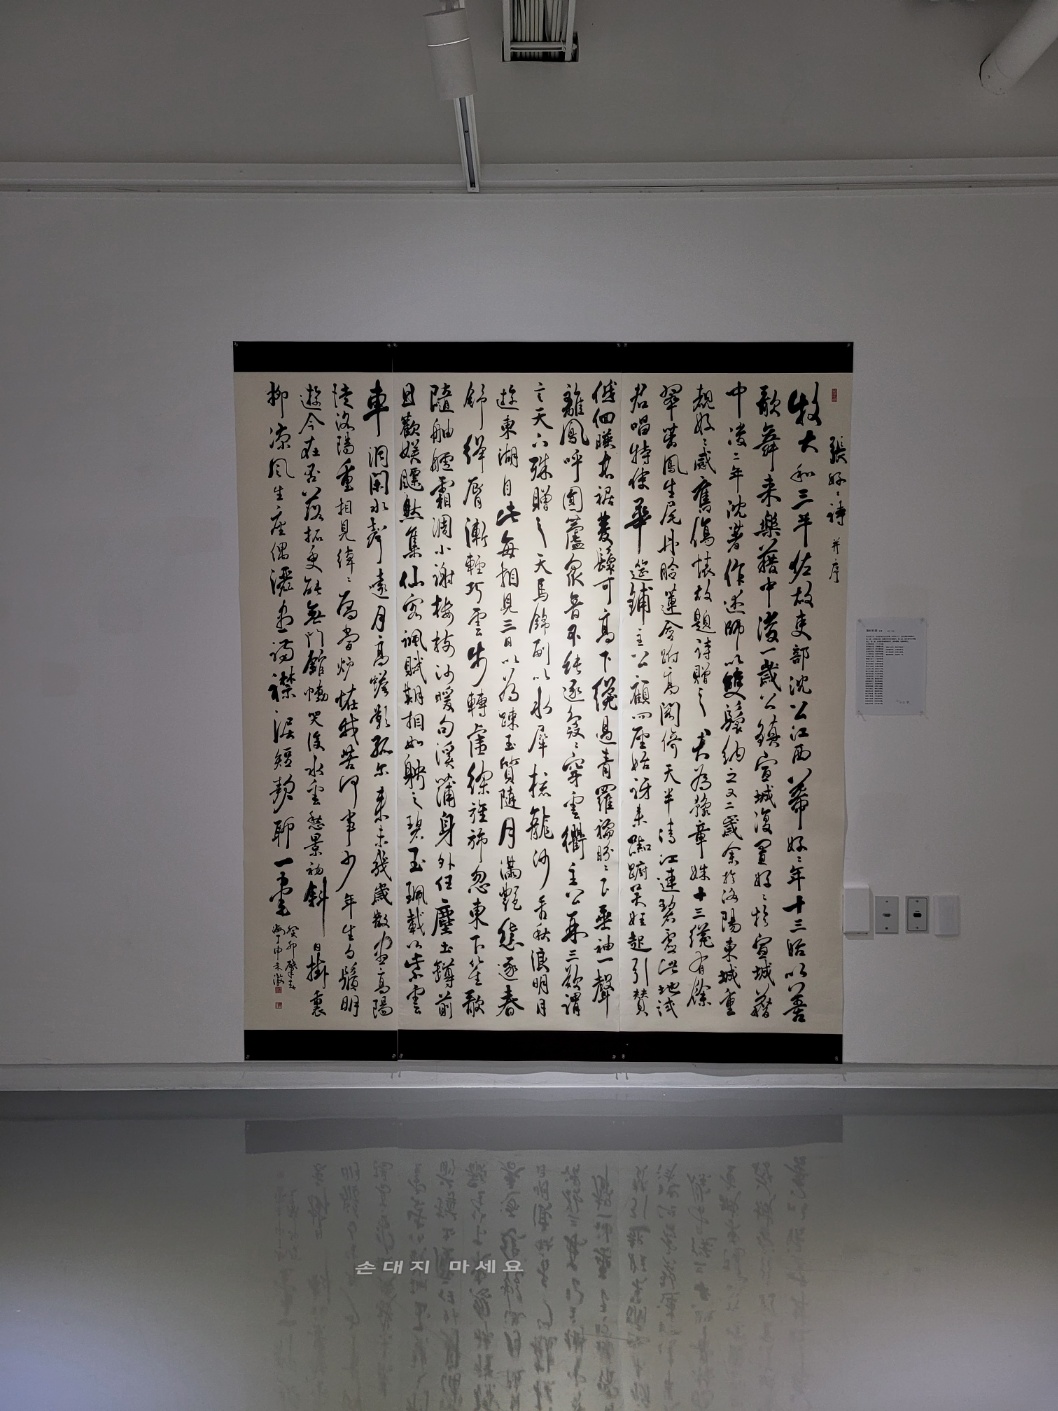 張好〻詩 并序
牧大和三年佐故吏部沈公江西幕好〻年十三始以善
歌舞来樂籍中後一歲公鎮宣城復置好〻於宣城籍
中後二年沈著作述師以雙鬟納之又二歲余於洛陽東城重
覩好〻感舊傷懷故題詩贈之君為豫章姝十三纔有餘
翠茁鳳生尾丹臉蓮含跗高閣倚天半清江連碧虛此地試
君唱特使華筵鋪主公顧四座始訝来踟躕吳娃起引贊
低佪暎長裾雙鬟可高下纔過青羅襦盼〻下垂袖一聲
離鳳呼圓蘆衆音不能逐裊〻穿雲衢主公再三歎謂
言天下殊贈之天馬錦副以水犀梳龍沙看秋浪明月
遊東湖自此每相見三日以為踈玉質隨月滿艷態逐春
舒絳脣漸輕巧雲步轉虛徐旌旆忽東下笙歌
隨舳艫霜凋小謝樓樹沙暖句溪蒲身外任塵土罇前
且歡娛飄然集仙客諷賦期相如聘之碧玉珮載以紫雲
車洞閉水聲遠月高蟾影孤尔来未幾歲散盡高陽
徒洛陽重相見綽〻為當爐怪我苦何事少年生白鬚朋
遊今在否落拓更能無門館慟哭後水雲愁景初斜日掛衰
柳凉風生座偶灑盡滿襟淚短歌聊一書
癸卯
손대지 마세요